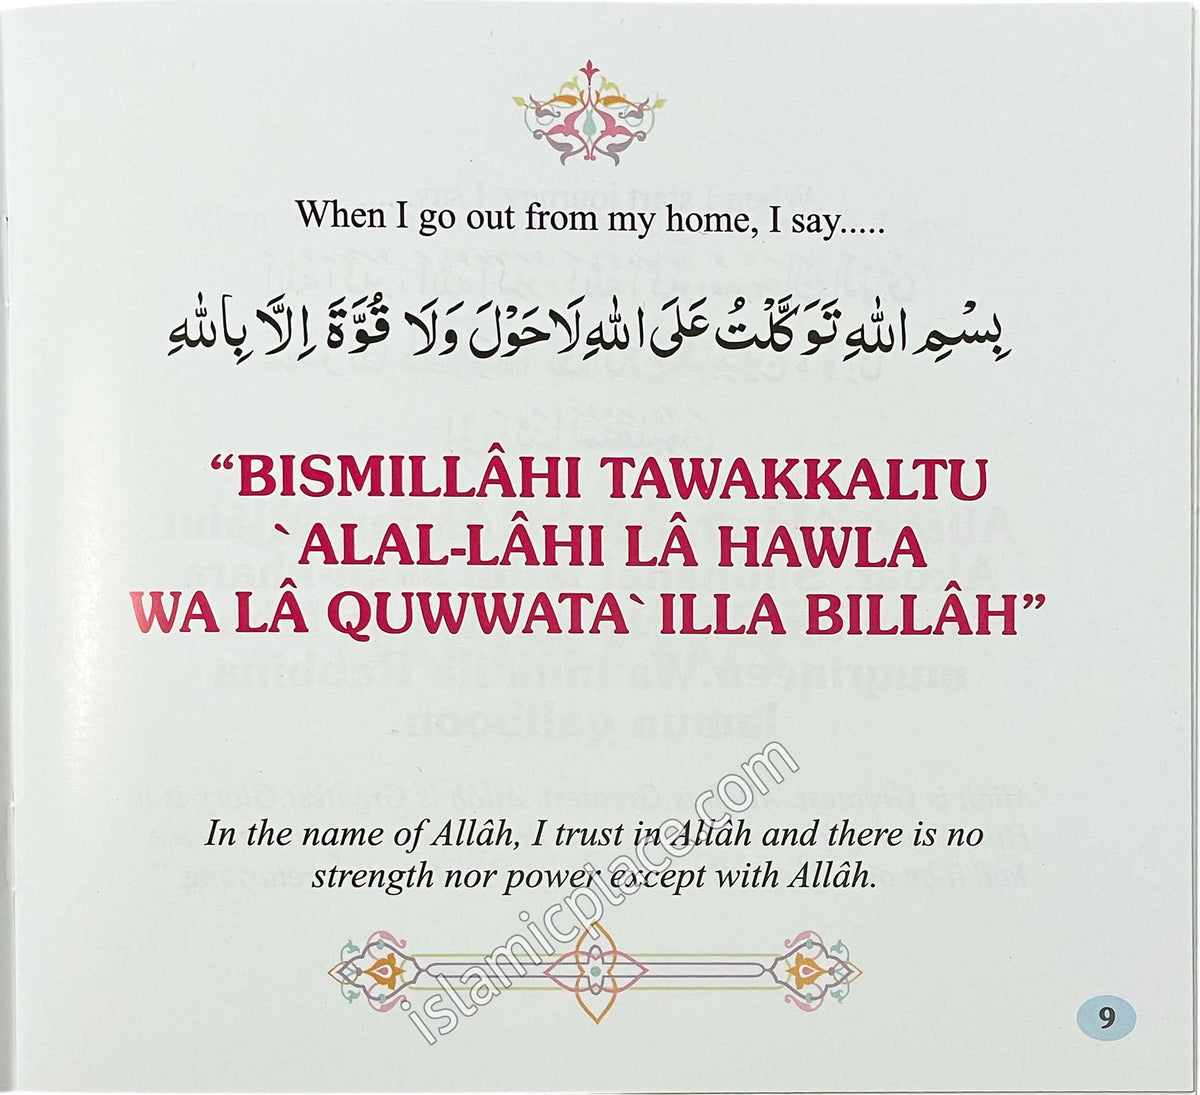 When I go out from my home, I say.....
بِسْمِ اللهِ تَوَكَّلْتُ عَلَى اللهِ لَا حَوْلَ وَلَا قُوَّةَ اِلَّا بِاللهِ
“BISMILLÂHI TAWAKKALTU
`ALAL-LÂHI LÂ HAWLA
WA LÂ QUWWATA` ILLA BILLÂH”
In the name of Allâh, I trust in Allâh and there is no
strength nor power except with Allâh.
islamicplace.com
9